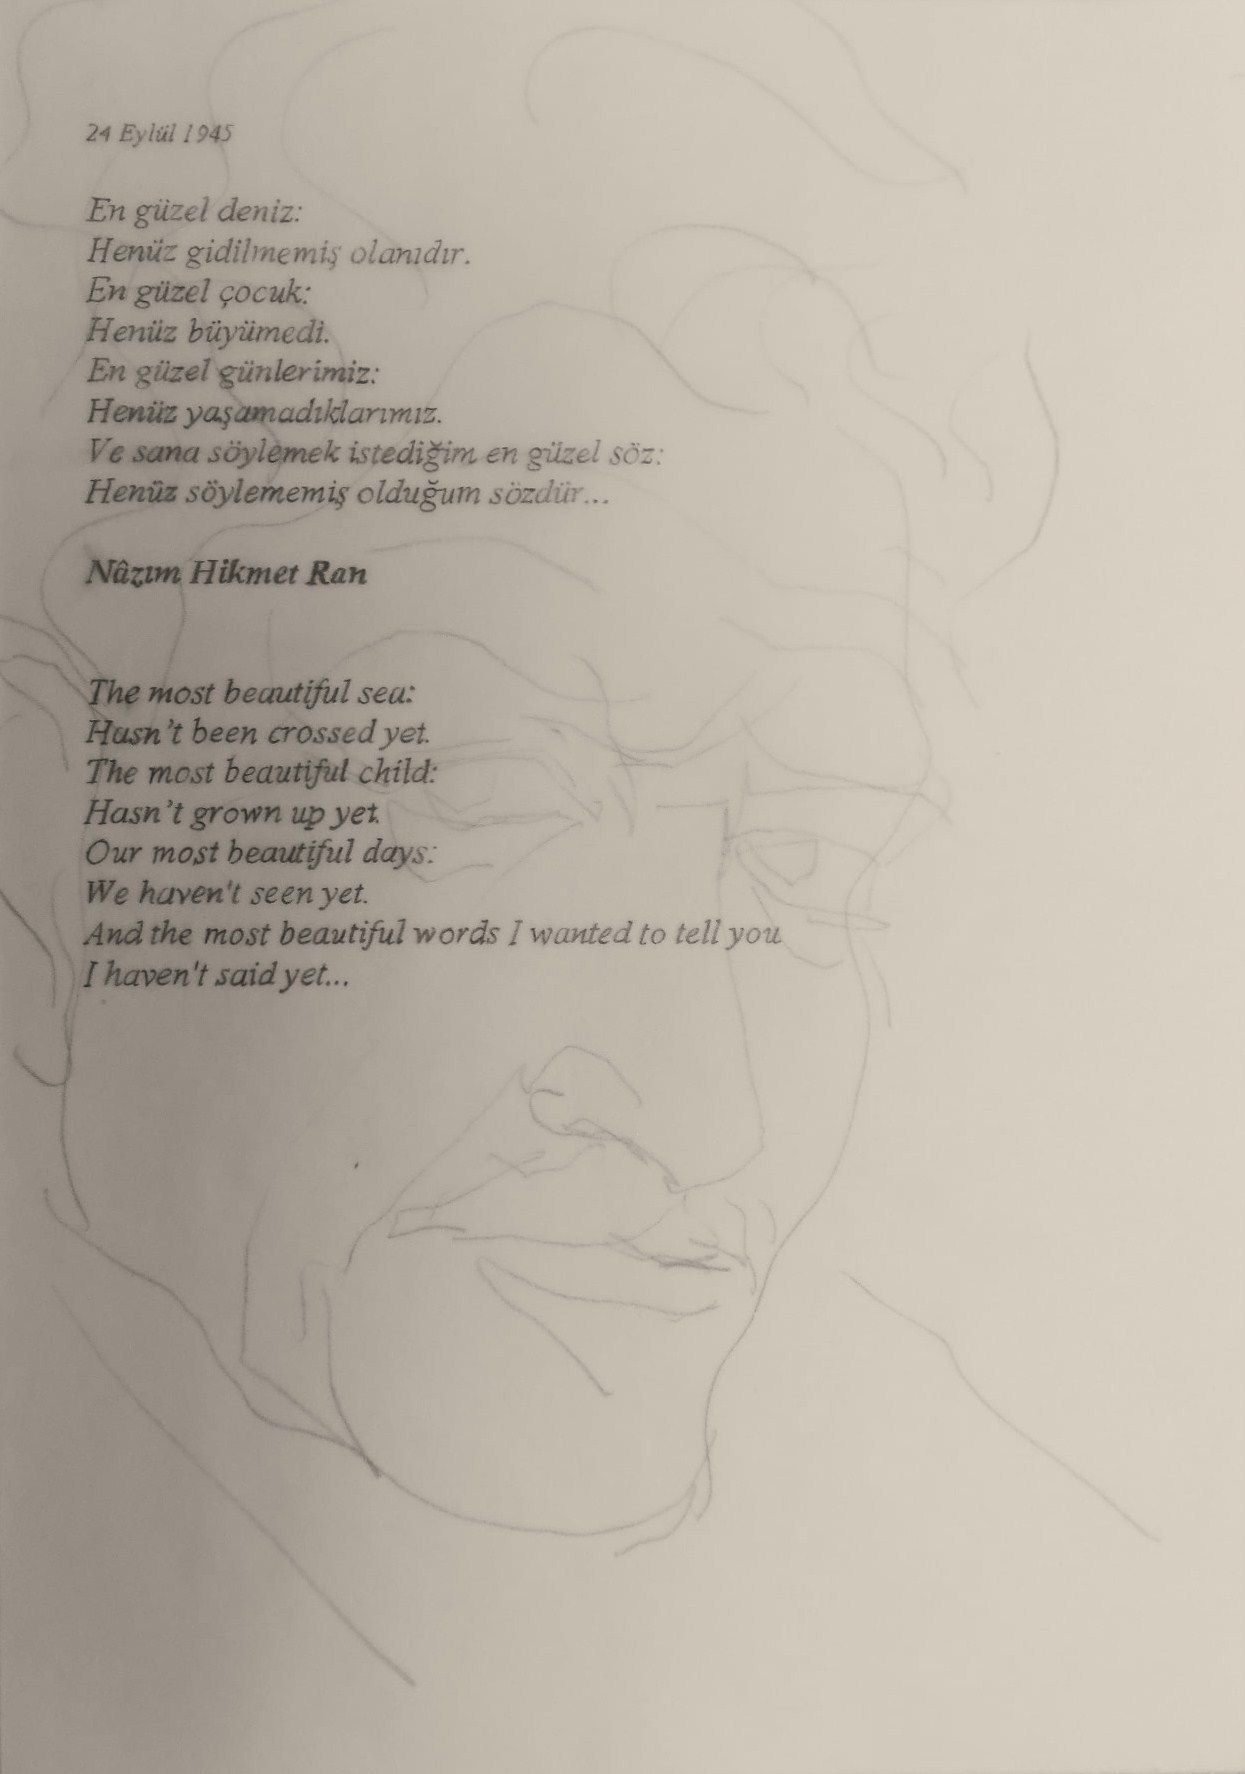 24 Eylül 1945
En güzel deniz:
Henüz gidilmemiş olanıdır.
En güzel çocuk:
Henüz büyümedi.
En güzel günlerimiz:
Henüz yaşamadıklarımız.
Ve sana söylemek istediğim en güzel söz:
Henüz söylememiş olduğum sözdür...
Nâzım Hikmet Ran
The most beautiful sea:
Hasn't been crossed yet.
The most beautiful child:
Hasn't grown up yet.
Our most beautiful days:
We haven't seen yet.
And the most beautiful words I wanted to tell you
I haven't said yet...